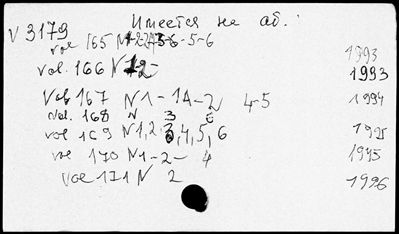 V 3179 Имеется не аб.
vol 165 N 1-2 3-6-5-6 1993
Vol. 166 N 12- 1993
Vol 167 N 1-1A-2 4-5 1994
Vol. 168 N 3 6
vol 169 N 1,2 3,4,5,6 1995
vol 170 N 1-2- 4 1995
Vol 171 N 2 1996